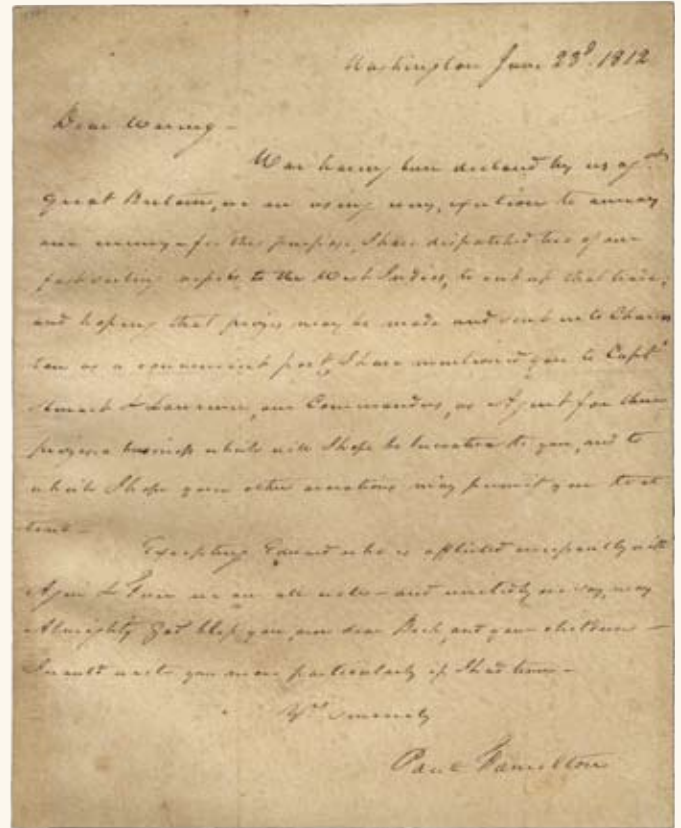 Washington June 23d. 1812
Dear Waring –
War having been declared by us agst
Great Britain, we are using every exertion to annoy
our enemy & for this purpose, I have dispatched two of our
fast sailing vessels to the West Indies, to cut up that trade;
and hoping that prizes may be made and sent in to Charles
ton as a convenient port, I have mentioned you to Capts
& Lawrence, our Commanders, as Agent for their
prizes a business which will I hope be lucrative to you, and to
which I hope your other avocations may permit you to at
tend –
Excepting Edward who is afflicted with
Ague & Fever we are all well – and unitedly we say, may
Almighty God bless you, our dear and your children –
I would write you more particularly if I had time –
Yrs sincerely
Paul Hamilton